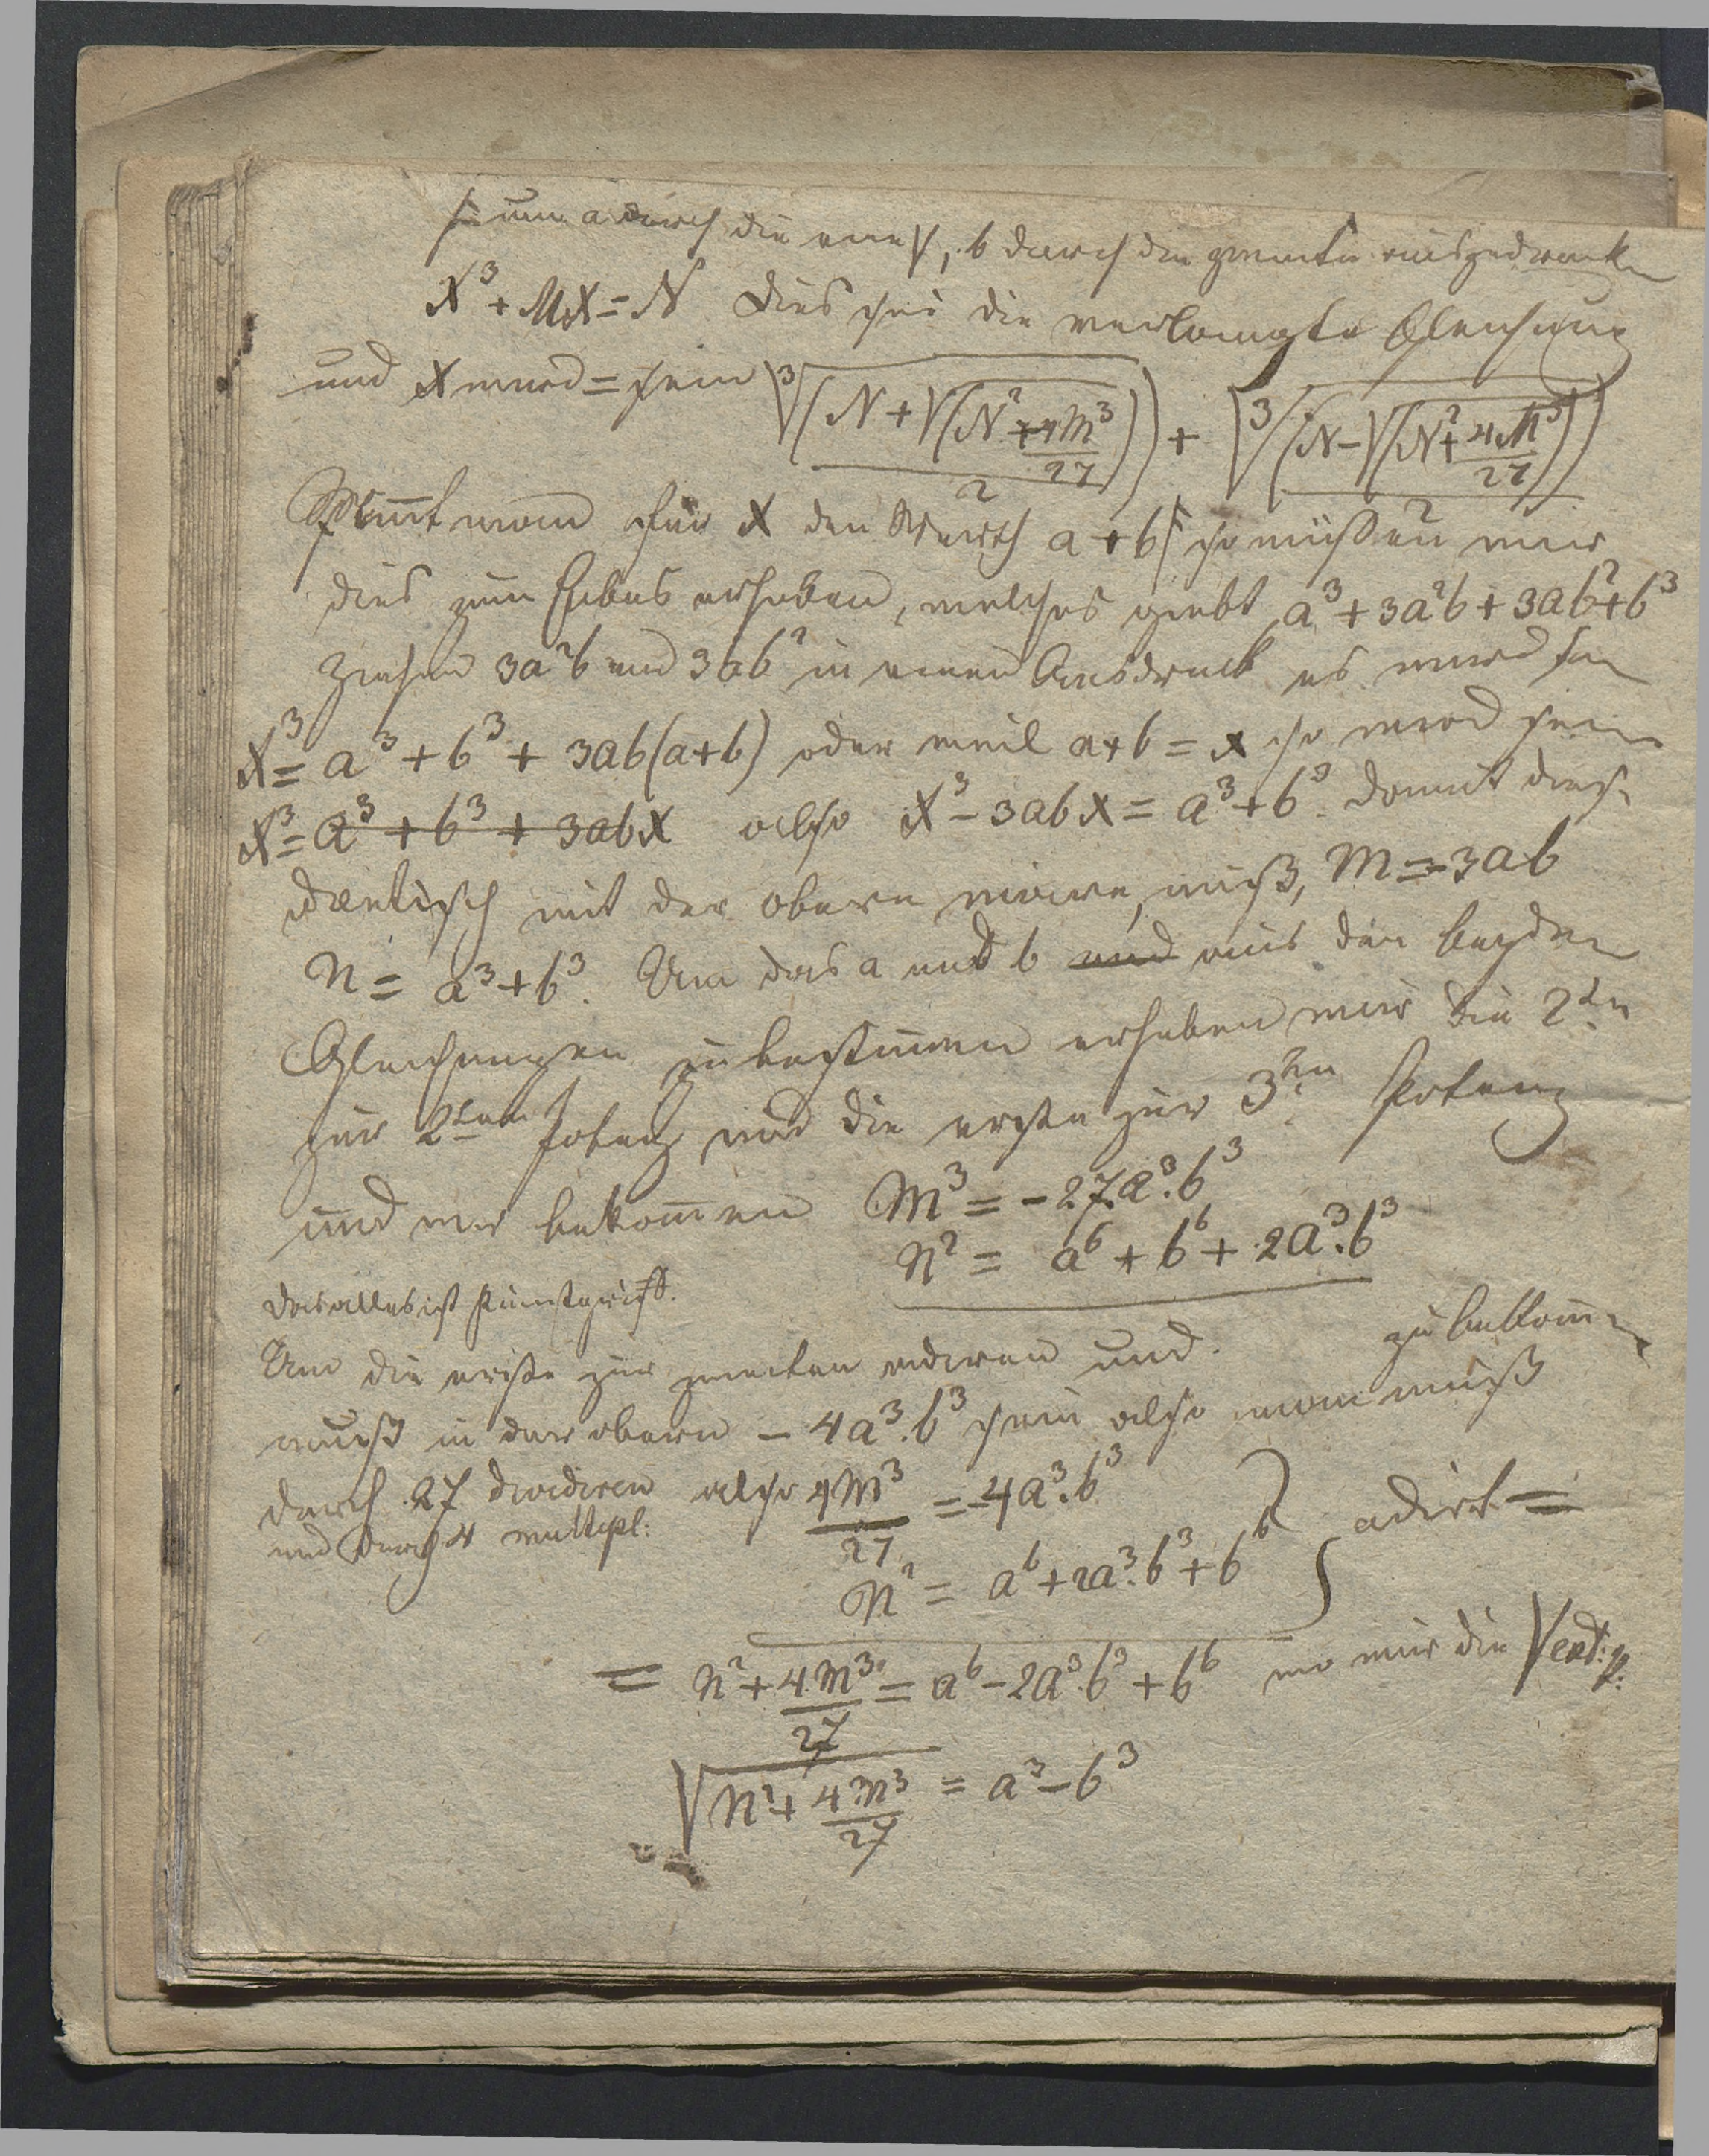 |: um a durch die eine √, b durch die zweite auszudrucken
X³ + MX = N Dies sei die verlangte Gleichung
und X wird = sein ∛((N + √(N² + 4M³/27))/2) + ∛((N − √(N² + 4M³/27))/2)
Nimmt man für X den Werth a + b so müßen wir
dies zum Cubus erheben, welches giebt a³ + 3a²b + 3ab² + b³
Ziehen 3a²b und 3ab² in einen Ausdruck es wird sein
X³ = a³ + b³ + 3ab(a+b) oder weil a+b = x so wird sein
X³ = a³ + b³ + 3abX also X³ − 3abX = a³ + b³. Damit dies
identisch mit der obern wäre, muß, M = −3ab
N = a³ + b³. Um das a und b und aus den beyden
Gleichungen zu bestimmen erheben wir die 2te
zur 2ten Potenz und die erste zur 3ten Potenz
und wir bekommen M³ = −27.a³.b³
N² = a⁶ + b⁶ + 2a³.b³
Das alles ist Kunstgriff.
Um die erste zur zweiten addiren und. zu bekommen
muß in der obern − 4a³.b³ sein also man muß
durch 27 dividiren also 4M³/27 = −4a³.b³
und durch 4 multipl:
N² = a⁶ + 2a³.b³ + b⁶ } adirt =
= N² + 4M³/27 = a⁶ − 2a³.b³ + b⁶ wo wir die √ ext: q:
√(N² + 4M³/27) = a³ − b³